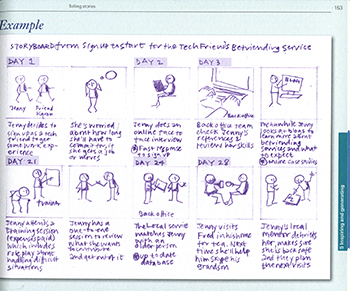 Telling stories
153
Example
STORYBOARD: from Sign up to start for the Tech Friend's Befriending service
DAY 1
DAY 2
DAY 3
Jenny
Friend
Back office
Jenny decides to
sign up as a tech
friend to get
some work exp-
erience
She's worried
about how long
she'd have to
commit for, if
she gets a job
or moves
Jenny does an
online face to
face interview
Fast response
to sign up
Back office team
check Jenny's
references &
review her skills
Meanwhile Jenny
looks at
to learn more about
befriending
services and what
to expect
online case studies
DAY 21
DAY 24
DAY 28
training
Back office
Jenny attends a
training session
(expenses paid)
which includes
role play about
handling difficult
situations
Jenny has a
one-to-one
session to review
what she wants
to contribute
and get out of it
The local service
matches Jenny
with an
older person
up to date
database
Jenny visits
Fred in his home
for tea. Next
time she'll help
him Skype his
Grandson
Jenny's local
mentor debriefs
her, makes sure
she is back safe
and they plan
the next visits